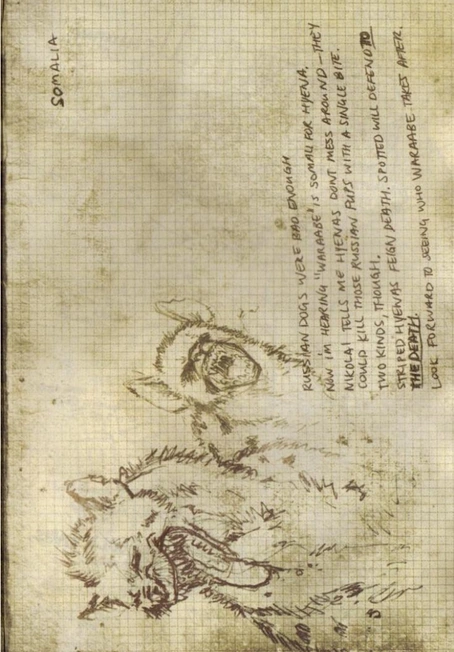 SOMALIA
RUSSIAN DOGS WERE BAD ENOUGH
NOW I'M HEARING "WARAABE" IS SOMALI FOR HYENA.
NIKOLAI TELLS ME HYENAS DONT MESS AROUND – THEY
COULD KILL THOSE RUSSIAN PUPS WITH A SINGLE BITE.
TWO KINDS, THOUGH.
STRIPED HYENAS FEIGN DEATH. SPOTTED WILL DEFEND TO
THE DEATH.
LOOK FORWARD TO SEEING WHO WARAABE TAKES AFTER.